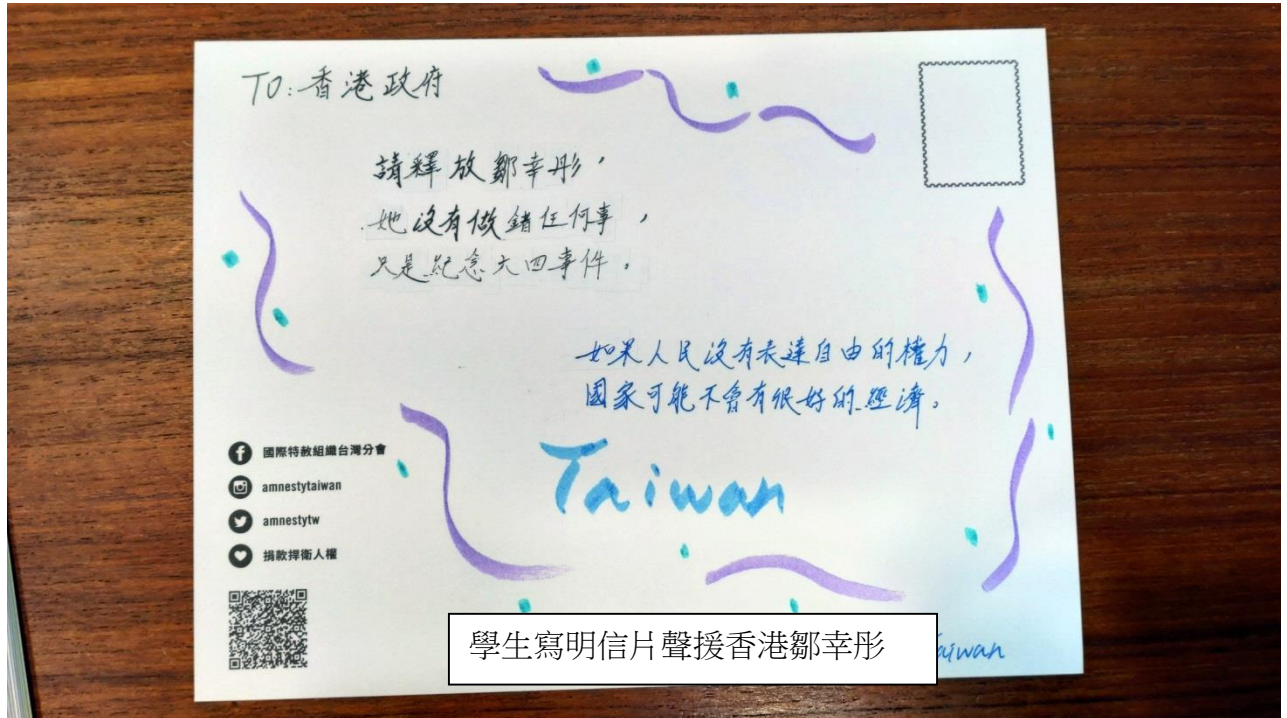 TO:香港政府
請釋放鄒幸彤,
她沒有做錯任何事,
只是紀念六四事件。
如果人民沒有表達自由的權力,
國家可能不會有很好的經濟。
Taiwan
國際特赦組織台灣分會
amnestytaiwan
amnestytw
捐款捍衛人權
學生寫明信片聲援香港鄒幸彤
aiwan